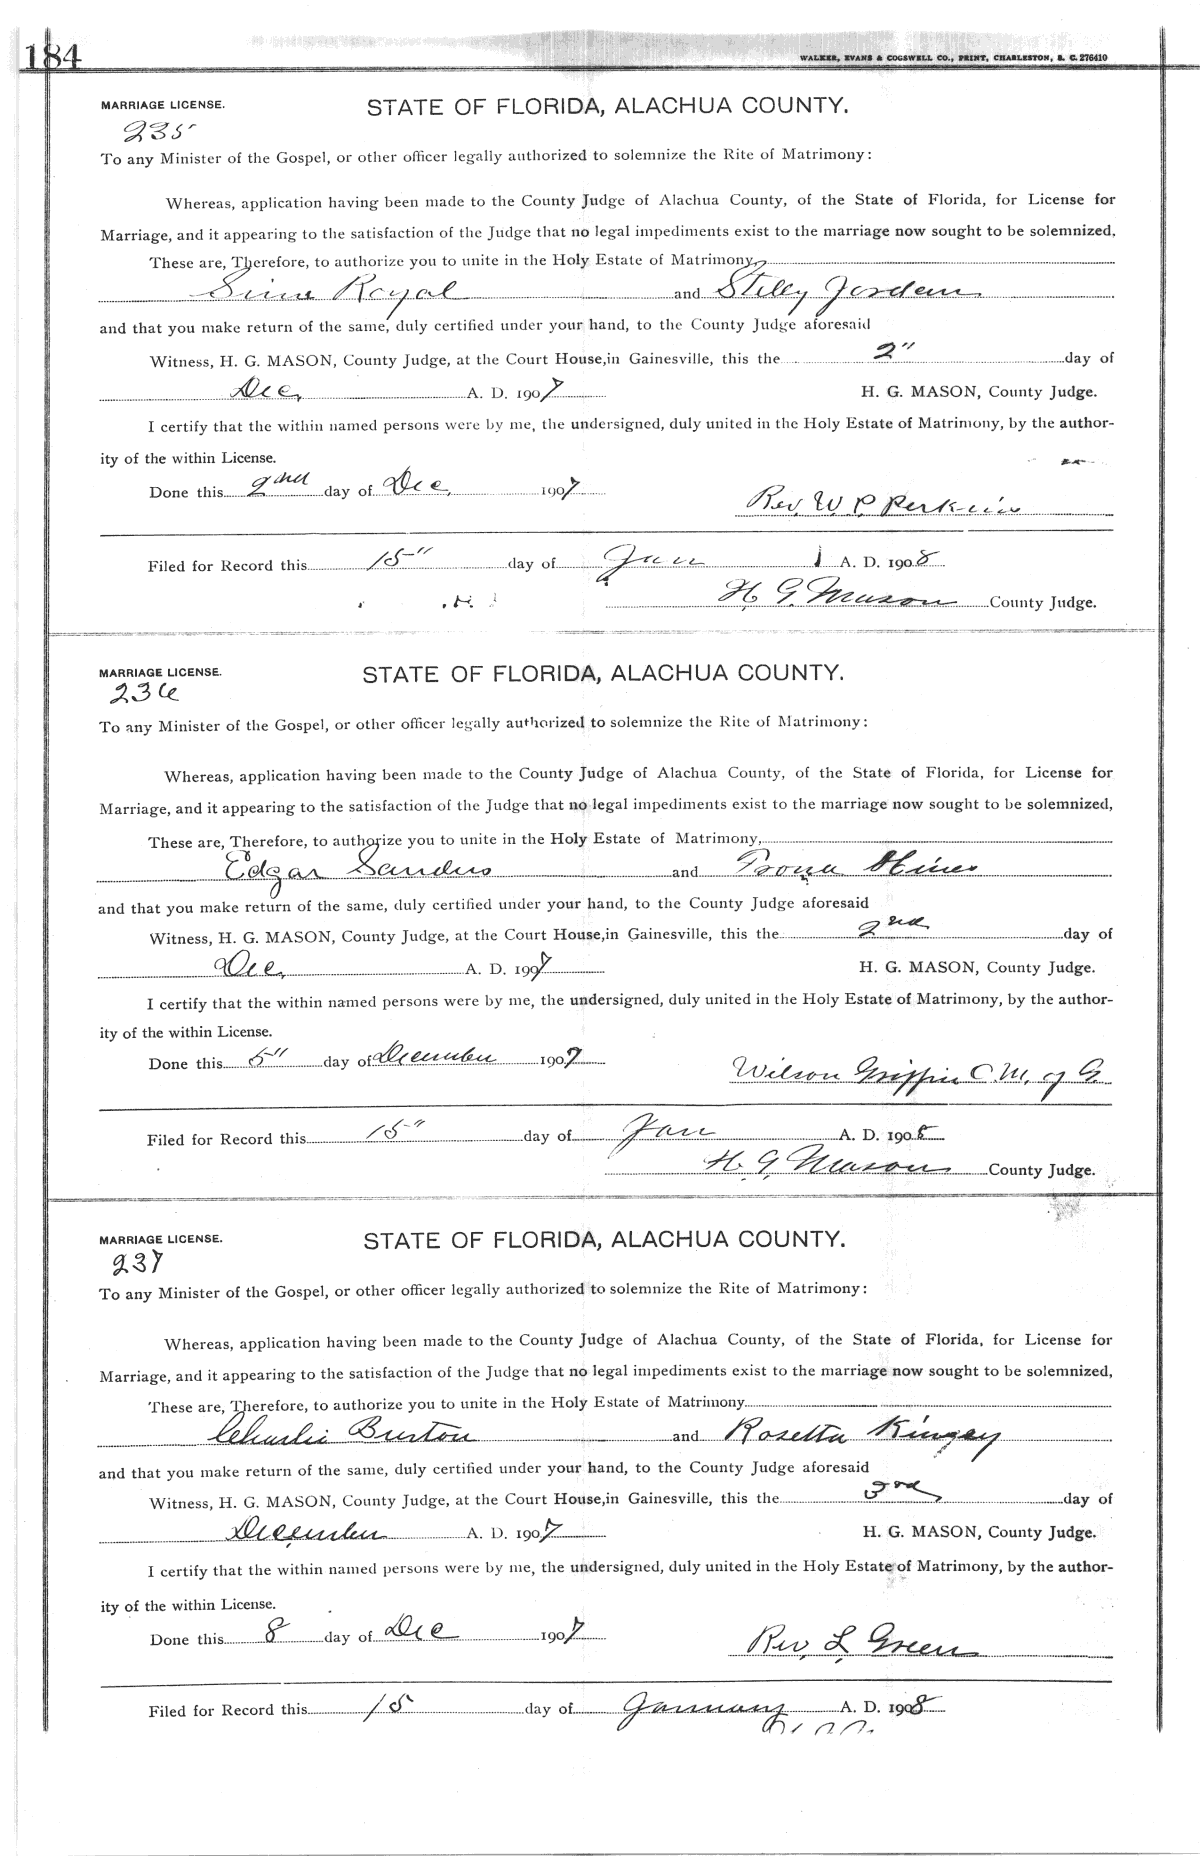 184
WALKER, EVANS & COGSWELL CO., PRINT, CHARLESTON, S. C. 276410
MARRIAGE LICENSE. STATE OF FLORIDA, ALACHUA COUNTY.
235
To any Minister of the Gospel, or other officer legally authorized to solemnize the Rite of Matrimony:
Whereas, application having been made to the County Judge of Alachua County, of the State of Florida, for License for
Marriage, and it appearing to the satisfaction of the Judge that no legal impediments exist to the marriage now sought to be solemnized,
These are, Therefore, to authorize you to unite in the Holy Estate of Matrimony,
Royal and Jordan
and that you make return of the same, duly certified under your hand, to the County Judge aforesaid
Witness, H. G. MASON, County Judge, at the Court House, in Gainesville, this the 2" day of
Dec, A. D. 1907 H. G. MASON, County Judge.
I certify that the within named persons were by me, the undersigned, duly united in the Holy Estate of Matrimony, by the author-
ity of the within License.
Done this 2nd day of Dec, 1907
Rev. W. P. Perkins
Filed for Record this 15" day of Jan A. D. 1908
H. G. Mason County Judge.
MARRIAGE LICENSE. STATE OF FLORIDA, ALACHUA COUNTY.
236
To any Minister of the Gospel, or other officer legally authorized to solemnize the Rite of Matrimony:
Whereas, application having been made to the County Judge of Alachua County, of the State of Florida, for License for
Marriage, and it appearing to the satisfaction of the Judge that no legal impediments exist to the marriage now sought to be solemnized,
These are, Therefore, to authorize you to unite in the Holy Estate of Matrimony,
Edgar Sanders and Hines
and that you make return of the same, duly certified under your hand, to the County Judge aforesaid
Witness, H. G. MASON, County Judge, at the Court House, in Gainesville, this the 2nd day of
Dec, A. D. 1907 H. G. MASON, County Judge.
I certify that the within named persons were by me, the undersigned, duly united in the Holy Estate of Matrimony, by the author-
ity of the within License.
Done this 5" day of December 1907
Wilson Griffin C. M. of G.
Filed for Record this 15" day of Jan A. D. 1908
H. G. Mason County Judge.
MARRIAGE LICENSE. STATE OF FLORIDA, ALACHUA COUNTY.
237
To any Minister of the Gospel, or other officer legally authorized to solemnize the Rite of Matrimony:
Whereas, application having been made to the County Judge of Alachua County, of the State of Florida, for License for
Marriage, and it appearing to the satisfaction of the Judge that no legal impediments exist to the marriage now sought to be solemnized,
These are, Therefore, to authorize you to unite in the Holy Estate of Matrimony
Charlie Burton and Rosetta Kinsey
and that you make return of the same, duly certified under your hand, to the County Judge aforesaid
Witness, H. G. MASON, County Judge, at the Court House, in Gainesville, this the 3rd day of
December A. D. 1907 H. G. MASON, County Judge.
I certify that the within named persons were by me, the undersigned, duly united in the Holy Estate of Matrimony, by the author-
ity of the within License.
Done this 8 day of Dec 1907
Rev, L, Green
Filed for Record this 15 day of January A. D. 1908